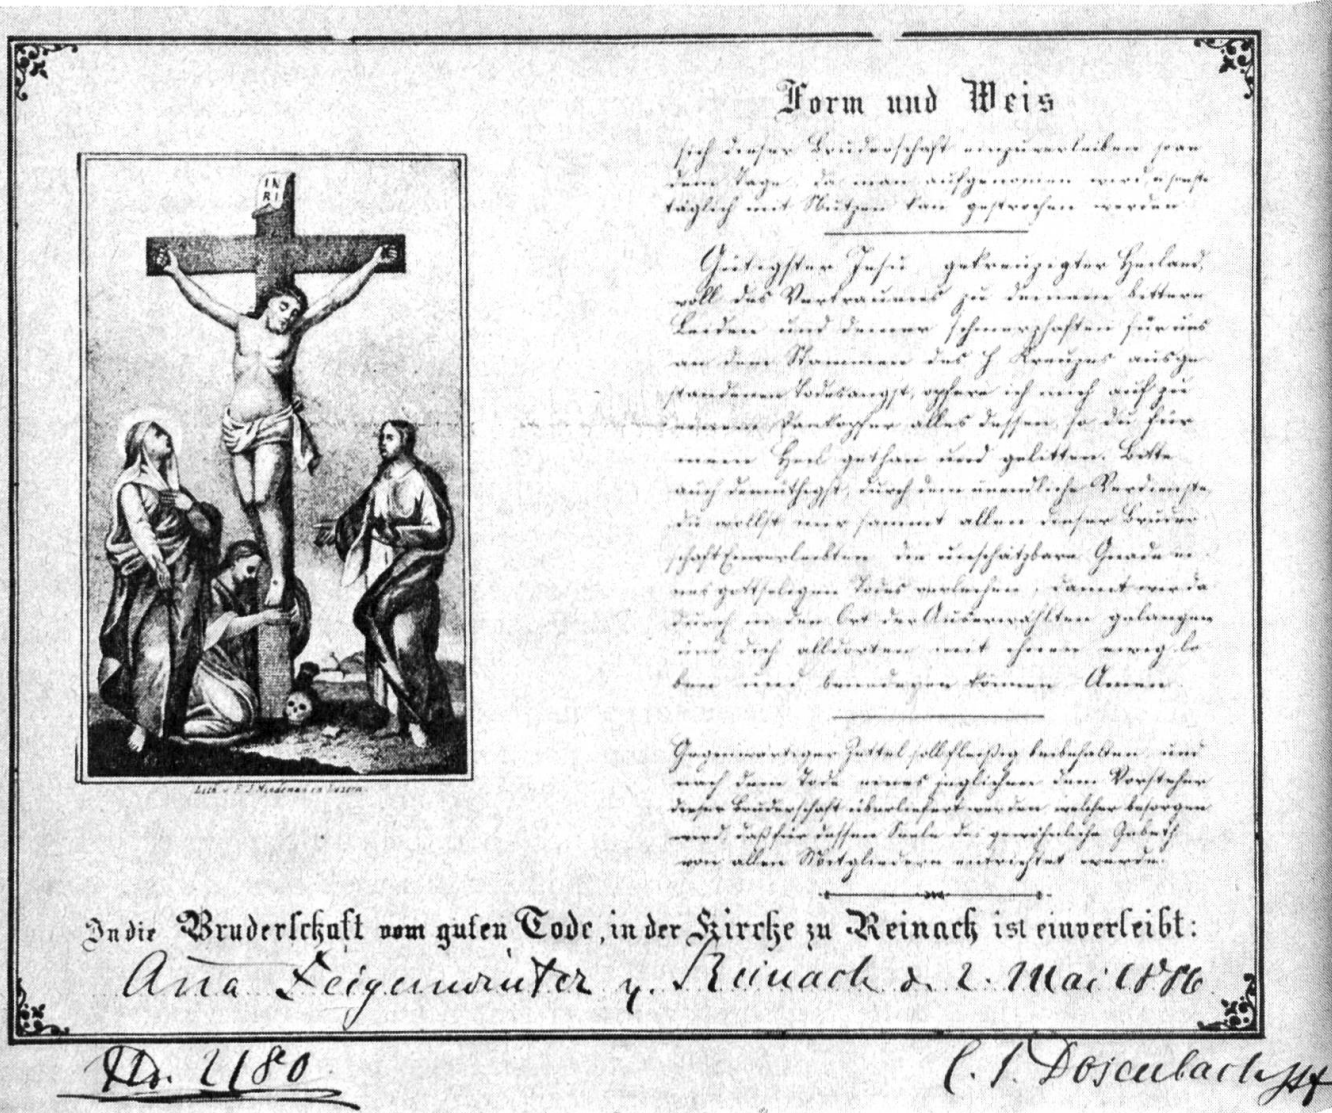 Form und Weis
sich dieser Bruderschaft einzuverleiben so an
dem Tage, da man aufgenomen wird, u sonst
täglich mit Nutzen kan gesprochen werden.
INRI
Gütigster Jesu, gekreuzigter Heiland,
voll des Vertrauens zu deinem bittern
Leiden und deiner schmerzhaften für uns
an dem Stammen des H. Kreuzes ausge
standenen Todesangst, opfere ich mich auf zu
einem Dankopfer alles dessen, so du für
mein Heil gethan und gelitten. Bitte
auch demüthigst, durch dein unendliche Verdienste,
du wollst mir sammt allen dieser Bruder
schaft Einverleibten die unschätzbare Gnade ei
nes gottseligen Todes verleihen, damit wir da
durch in den Ort der Auserwählten gelangen
und dich alldorten mit ihnen ewig lo
ben und benedeyen können. Amen.
Gegenwärtiger Zettel soll fleißig beibehalten und
nach dem Tode eines jeglichen dem Vorsteher
dieser Bruderschaft überliefert werden, welcher besorgen
wird, daß für dessen Seele das gewöhnliche Gebeth
von allen Mitgliedern entrichtet werde.
Lith. v. in Luzern.
In die Bruderschaft vom guten Tode, in der Kirche zu Reinach ist einverleibt:
Ana Feigenwinter v. Reinach d. 2. Mai 1886
No. 2180
C. J. Dosenbach